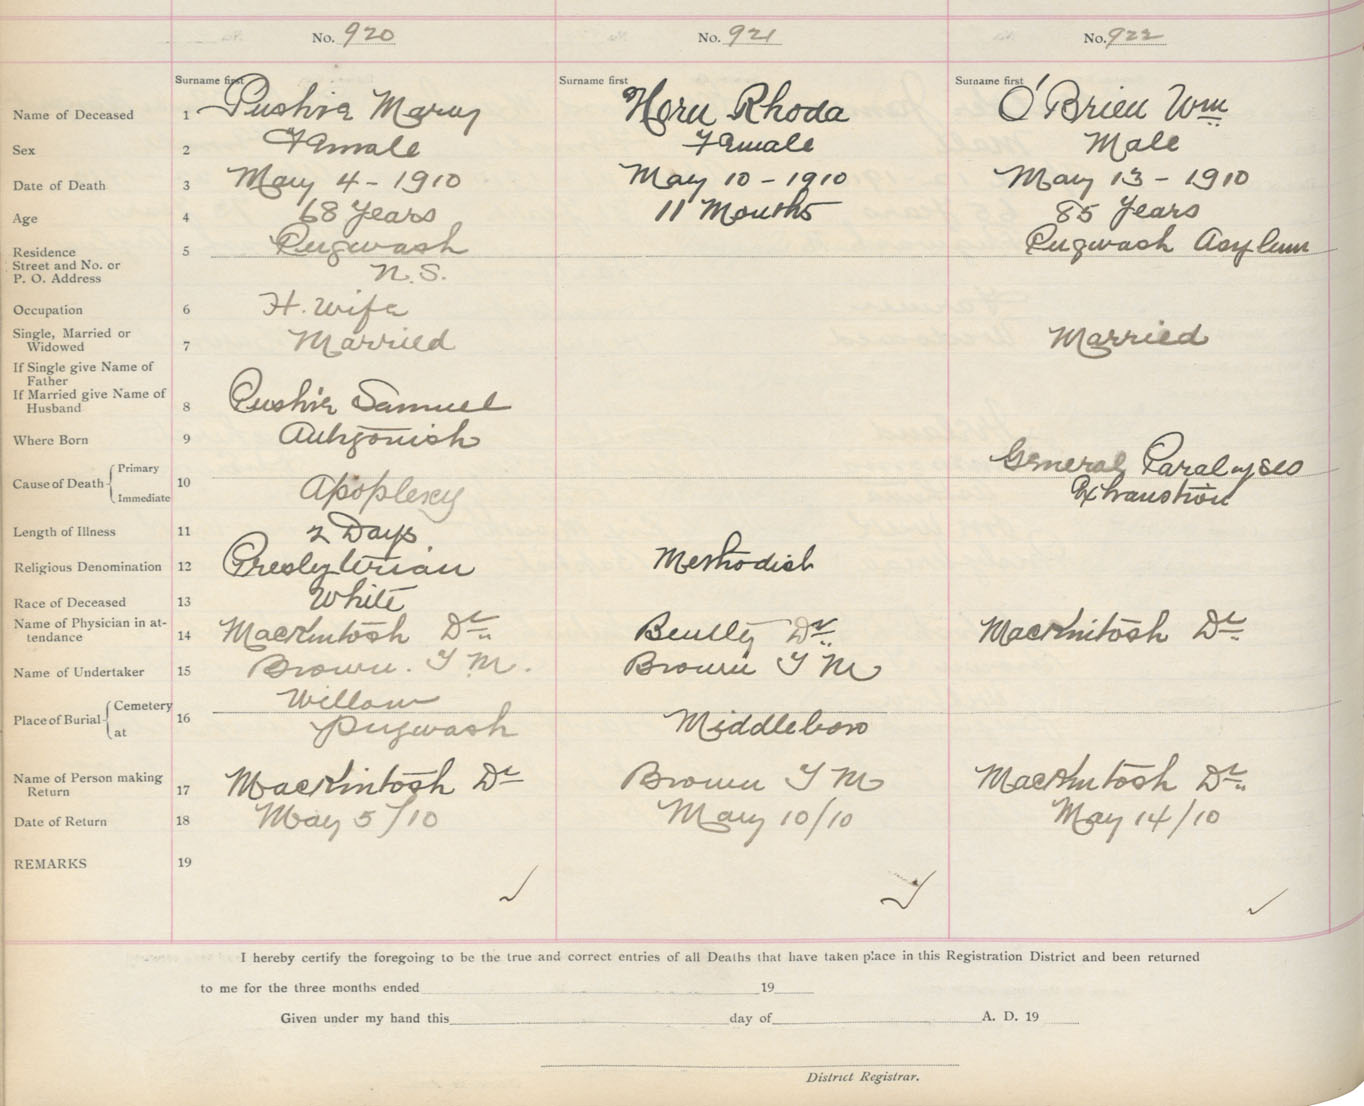 No. 920 No. 921 No. 922
Surname first Surname first Surname first
Name of Deceased 1 Pushie Mary Horn Rhoda O'Brien Wm
Sex 2 Female Female Male
Date of Death 3 May 4 - 1910 May 10 - 1910 May 13 - 1910
Age 4 68 Years 11 Months 85 Years
Residence 5 Pugwash Pugwash Asylum
Street and No. or
P. O. Address N.S.
Occupation 6 H. Wife
Single, Married or
Widowed 7 Married Married
If Single give Name of
Father
If Married give Name of
Husband 8 Pushie Samuel
Where Born 9 Antigonish
Cause of Death Primary General Paralyses
Immediate 10 Apoplexy Exhaustion
Length of Illness 11 2 Days
Religious Denomination 12 Presbyterian Methodist
Race of Deceased 13 White
Name of Physician in at-
tendance 14 MacKintosh Dr Dr MacKintosh Dr
Name of Undertaker 15 Brown. T M. Brown T M
Place of Burial Cemetery 16 Willow
at Pugwash Middleboro
Name of Person making
Return 17 MacKintosh Dr Brown T M MacKintosh Dr
Date of Return 18 May 5/10 May 10/10 May 14/10
REMARKS 19
I hereby certify the foregoing to be the true and correct entries of all Deaths that have taken place in this Registration District and been returned
to me for the three months ended 19
Given under my hand this day of A. D. 19
District Registrar.